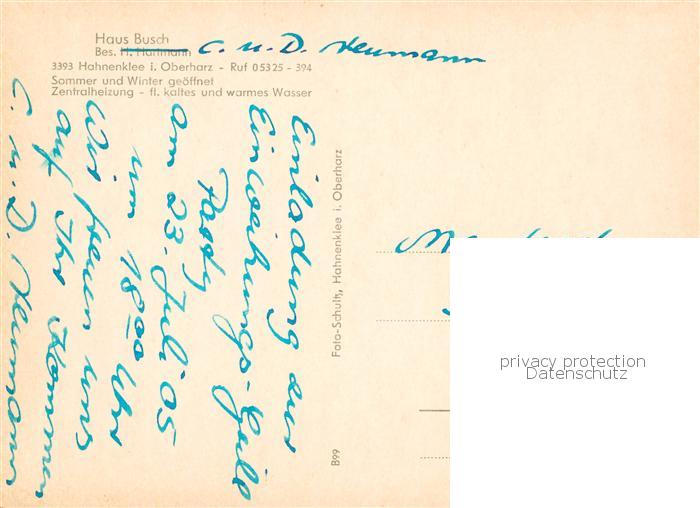 Haus Busch
Bes. H. Hartmann C. u. D. Neumann
3393 Hahnenklee i. Oberharz - Ruf 05325 - 394
Sommer und Winter geöffnet
Zentralheizung - fl. kaltes und warmes Wasser
Einladung zur
Einweihungs-Grill
Party
am 23. Juli 05
um 18 00 Uhr
Wir freuen uns
auf Ihr Kommen
C. u. D. Neumann
Foto-Schultz, Hahnenklee i. Oberharz
B99
privacy protection
Datenschutz